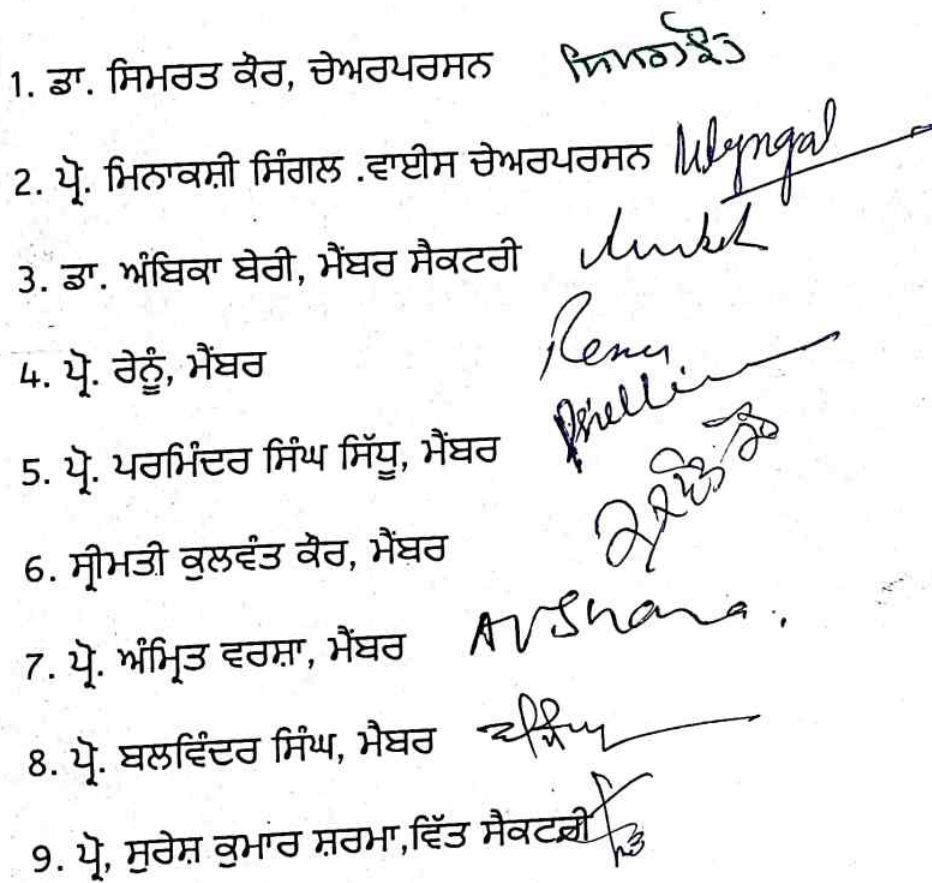 1. ਡਾ. ਸਿਮਰਤ ਕੌਰ, ਚੇਅਰਪਰਸਨ
2. ਪ੍ਰੋ. ਮਿਨਾਕਸ਼ੀ ਸਿੰਗਲ .ਵਾਈਸ ਚੇਅਰਪਰਸਨ
3. ਡਾ. ਅੰਬਿਕਾ ਬੇਰੀ, ਮੈਂਬਰ ਸੈਕਟਰੀ
4. ਪ੍ਰੋ. ਰੇਨੂੰ, ਮੈਂਬਰ Renu
5. ਪ੍ਰੋ. ਪਰਮਿੰਦਰ ਸਿੰਘ ਸਿੱਧੂ, ਮੈਂਬਰ
6. ਸ੍ਰੀਮਤੀ ਕੁਲਵੰਤ ਕੌਰ, ਮੈਂਬਰ
7. ਪ੍ਰੋ. ਅੰਮ੍ਰਿਤ ਵਰਸ਼ਾ, ਮੈਂਬਰ
8. ਪ੍ਰੋ. ਬਲਵਿੰਦਰ ਸਿੰਘ, ਮੈਬਰ
9. ਪ੍ਰੋ, ਸੁਰੇਸ਼ ਕੁਮਾਰ ਸ਼ਰਮਾ,ਵਿੱਤ ਸੈਕਟਰੀ